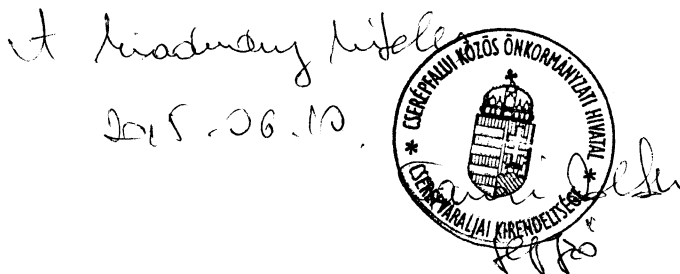 A kiadmány hiteles
2015.06.10.
CSERÉPFALUI KÖZÖS ÖNKORMÁNYZATI HIVATAL
* CSERÉPVÁRALJAI KIRENDELTSÉGE *
jegyző